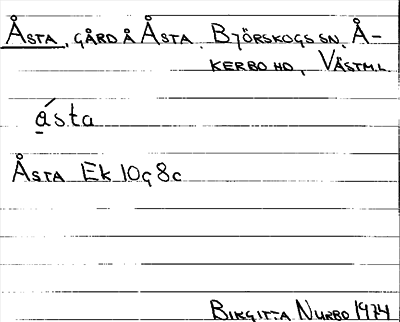 Åsta, gård å Åsta, Björskogs sn, Å-
kerbo hd, Västm.l
ásta
Åsta Ek 10g8c
Birgitta Nurbo 1974